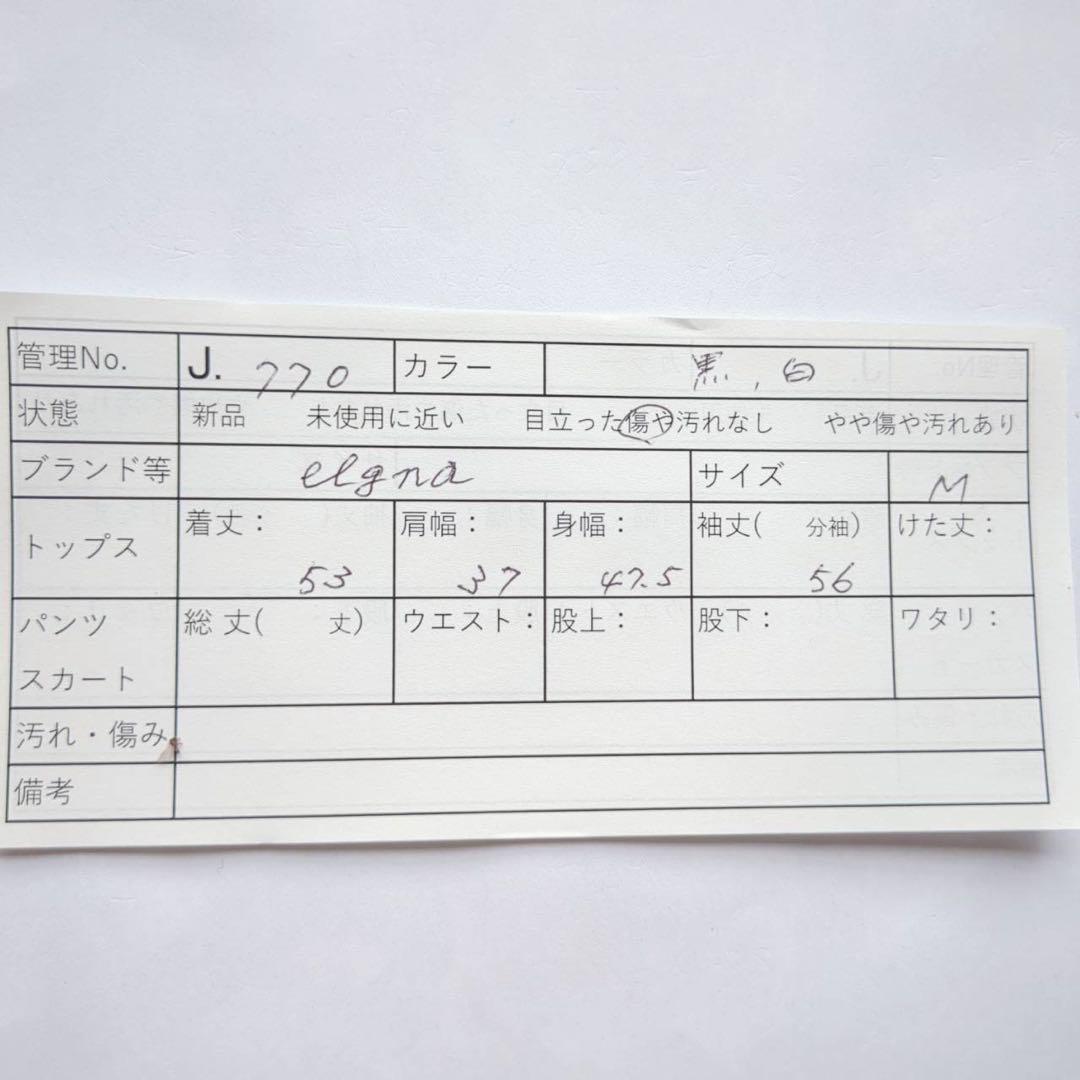 管理No. J. 770 カラー 黒,白
状態 新品 未使用に近い 目立った傷や汚れなし やや傷や汚れあり
ブランド等 elgna サイズ M
トップス 着丈: 53 肩幅: 37 身幅: 47.5 袖丈( 分袖) 56 けた丈:
パンツ 総丈( 丈) ウエスト: 股上: 股下: ワタリ:
スカート
汚れ・傷み
備考